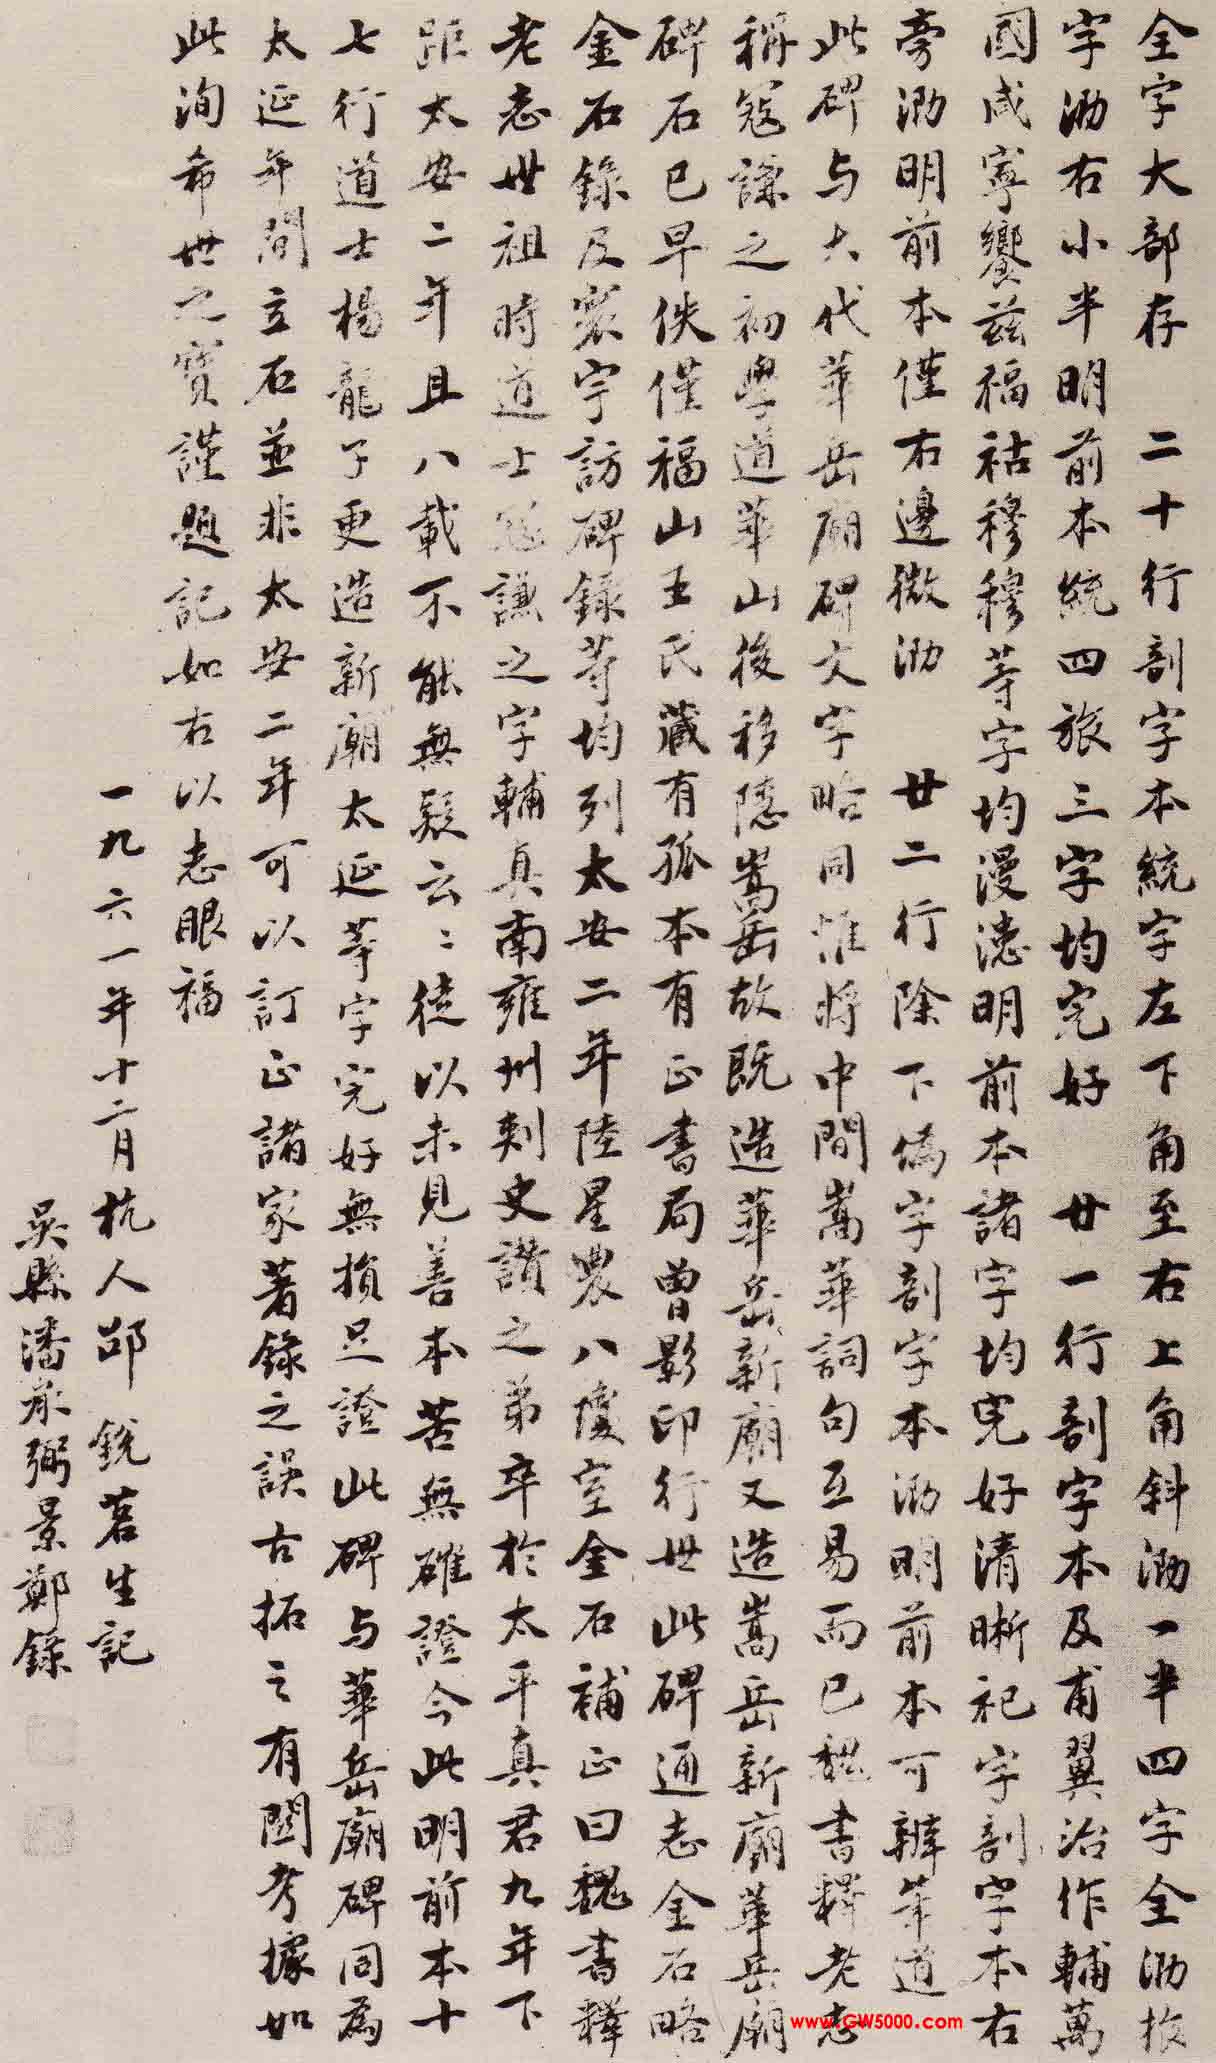 全字大部存　二十行剖字本統字左下角至右上角斜泐一半四字全泐校
字泐右小半明前本統四旅三字均完好　廿一行剖字本及甫翼治作輔萬
國咸寧饗兹福祜穆穆等字均漫漶明前本諸字均完好清晰祀字剖字本右
旁泐明前本僅右邊微泐　廿二行除下儔字剖字本泐明前本可辨年道
此碑与大代華岳廟碑文字略同惟將中間嵩華詞句互易而已魏書釋老志
稱寇謙之初學道華山後移隱嵩岳故既造華岳新廟又造嵩岳新廟華岳廟
碑石已早佚僅福山王氏藏有孤本有正書局曾影印行世此碑通志金石略
金石錄及寰宇訪碑錄等均列太安二年陸星農八瓊室金石補正曰魏書釋
老志世祖時道士寇謙之字輔真南雍州刺史讚之弟卒於太平真君九年下
距太安二年且八載不能無疑云云徒以未見善本苦無確證今此明前本十
七行道士楊龍子更造新廟太延等字完好無損足證此碑与華岳廟碑同為
太延年間立石並非太安二年可以訂正諸家著錄之誤古拓之有關考據如
此洵希世之寶謹題記如右以志眼福
一九六一年十二月杭人邵銳茗生記
吳縣潘承弼景鄭錄
www.GW5000.com